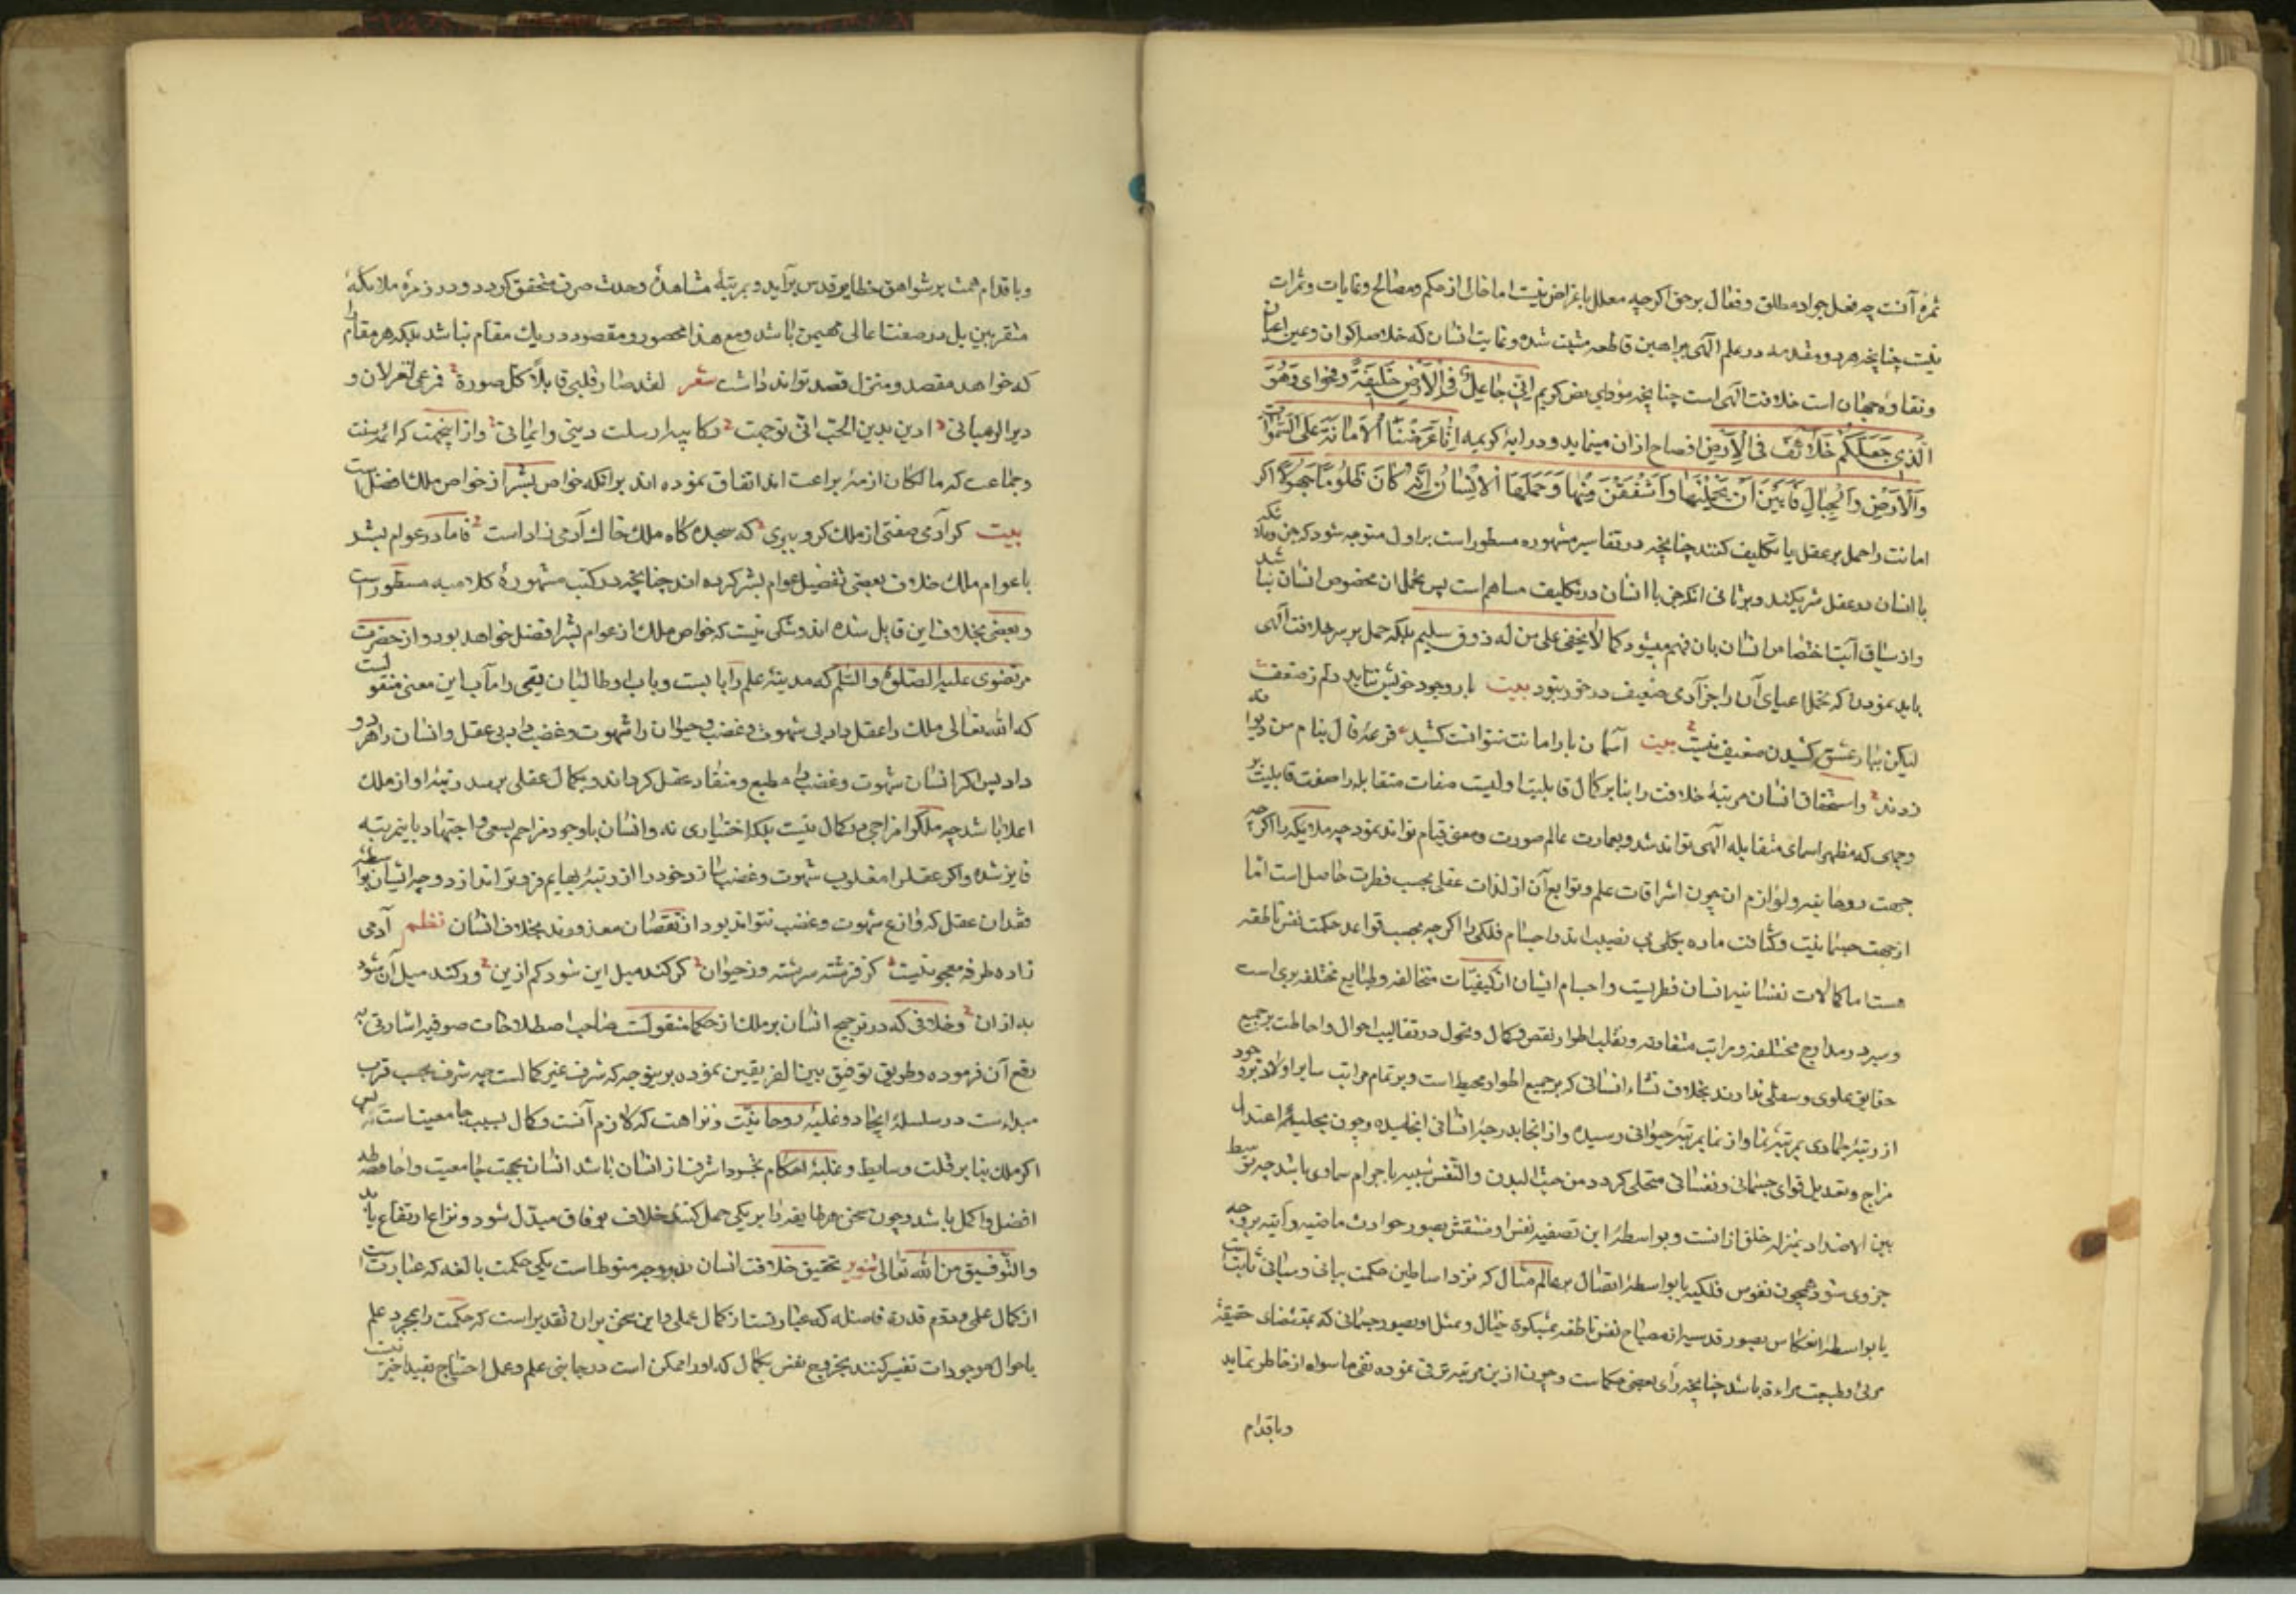 ثمرهٔ آنست چه فعل جواد مطلق و فعال برحق اکرچه معلل باغراض نیست اما خالی از حکم و مصالح و غایات و ثمرات
نیست چنانچه هر دو مقدمه در علم الهی ببراهین قاطعه مثبت شده و غایت انسان که خلاصه اکوان و عین اعیان
و نقاوه جهان است خلافت الهی است چنانچه مؤدای نص کریم اِنّی جَاعِلٌ فِی الْاَرْضِ خَلِیفَةً و فحوای وَهُوَ
الَّذِی جَعَلَکُمْ خَلَائِفَ فِی الْاَرْضِ افصاح ازان مینماید و در ایهٔ کریمه اِنَّا عَرَضْنَا الْاَمَانَةَ عَلَی السَّمٰوَاتِ
وَالْاَرْضِ وَالْجِبَالِ فَاَبَیْنَ اَنْ یَحْمِلْنَهَا وَاَشْفَقْنَ مِنْهَا وَحَمَلَهَا الْاِنْسَانُ اِنَّهُ کَانَ ظَلُومًا جَهُولًا اکر
امانت را حمل بر عقل یا تکلیف کنند چنانچه در تفاسیر مشهوره مسطور است بر اول متوجه شود که جن و ملائکه
با انسان در عقل شریکند و بر ثانی انکه جن با انسان در تکلیف مساهم است پس تحمل ان مخصوص انسان نباشد
و از سیاق آیت اختصاص انسان بان فهم میشود کما لا یخفی علی من له ذوق سلیم بلکه حمل بر سر خلافت الهی
باید نمودن که تحمل اعبای آن را جز آدمی ضعیف در خور نبود بیت بار وجود خویش نتابد دلم ز ضعف
لیکن ببار عشق کشیدن ضعیف نیست بیت آسمان بار امانت نتوانست کشید قرعهٔ فال بنام من دیوانه
زدند و استحقاق انسان مرتبهٔ خلافت را بنا بر کمال قابلیت اوست صفات متقابله را صفت قابلیت بر
وجهی که مظهر اسمای متقابله الهی تواند شد و بعمارت عالم صورت و معنی قیام تواند نمود چه ملایکه را اکرچه
جهت روحانیه و لوازم ان چون اشراقات علم و توابع آن از لذات عقلی بحسب فطرت حاصل است اما
از جهت جسمانیت و کثافت ماده بکلی بی نصیب اند و اجسام فلکی را اکرچه بحسب قواعد حکمت نفس ناطقه
هست اما کمالات نفسانیه ایشان فطریست و اجسام ایشان از کیفیّات متخالفه و طبایع مختلفه بری است
و سیر در مدارج مختلفه و مراتب متفاوته و تقلب اطوار نقص و کمال و تحول در تقالیب احوال و احاطت بر جمیع
حقایق علوی و سفلی ندارند بخلاف نشاء انسانی که بر جمیع اطوار محیط است و بر تمام مراتب سایر او اولاد نبود
از رتبهٔ جمادی بمرتبهٔ نما و از نما بمرتبهٔ حیوانی رسیده و از انجا بدرجهٔ انسانی انجامیده و چون بحلیهٔ اعتدال
مزاج و تعدیل قوای جسمانی و نفسانی متحلی کردد من حیث البدن والنفس شبیه باجرام سماوی باشد چه توسط
بین الاضداد بمنزله خلو ازانست و بواسطهٔ این تصفیه نفس او منتقش بصور حوادث ماضیه و آتیه بر وجه
جزوی شود همچون نفوس فلکیه یا بواسطهٔ اتصال بر عالم مثال که نزد اساطین حکمت بیانی و عیانی ثابت است
یا بواسطهٔ انعکاس صور قدسیه از مصباح نفس ناطقه بمشکوة خیال و تمثل او بصور جسمانی که بمقتضای حقیقهٔ
مرئی و طبیعت مراءة باشد چنانچه رأی بعضی حکماست و چون ازین مرتبه ترقی نموده نفی ما سواه از خاطر نماید
و باقدام
و باقدام همت بر شواهق خطایر قدس برآید و بمرتبهٔ مشاهدهٔ وحدت صرف متحقق کردد و در زمرهٔ ملائکهٔ
مقربین بل در صفت اعالی مهیمن باشد و مع هذا محصور و مقصود در یک مقام نباشد بلکه هر مقام را
که خواهد مقصد و منزل قصد تواند داشت شعر لقد صار قلبی قابلاً کل صورة فمرعی لغزلان و
دیر الرهبانی ادین بدین الحب انی توجهت رکائبه ارسلت دینی و ایمانی و از اینجهت که ائمه سنت
و جماعت که مالکان ازمهٔ براعت اند اتفاق نموده اند برانکه خواص بشر از خواص ملک افضل است
بیت کر آدمی صفتی از ملک کرو ببری که سجده کاه ملک خاک آدمی زاد است فاما در عوام بشر
با عوام ملک خلاف بعضی تفضیل عوام بشر کرده اند چنانچه در کتب مشهورهٔ کلامیه مسطور است
و بعضی بخلاف این قایل شده اند و شکی نیست که خواص ملک از عوام بشر افضل خواهد بود و از حضرت
مرتضوی علیه الصلوة والسلم که مدینهٔ علم را بابیست و باب او طالبان یقین را مآب این معنی منقولست
که الله تعالی ملک را عقل داد بی شهوت و غضب و حیوان را شهوت و غضب داد بی عقل و انسان را هر دو
داد پس اکر انسان شهوت و غضب را مطیع و منقاد عقل کرداند و بکمال عقلی برسد رتبهٔ او از ملک
اعلا باشد چه ملک را مزاحمی در کمال نیست بلکه اختیاری نه و انسان با وجود مزاحم بسعی و اجتهاد باینمرتبه
فایز شده و اکر عقل را مغلوب شهوت و غضب سازد خود را از رتبهٔ بهایم فروتر اندازد و چه ایشان بواسطهٔ
فقدان عقل که وازع شهوت و غضب تواند بود از نقصان معذورند بخلاف انسان نظم آدمی
زاده طرفه معجونیست کز فرشته سرشته وز حیوان کر کند میل این شود کم ازین ور کند میل آن شود
به از ان و خلافی که در ترجیح انسان بر ملک از حکما منقولست صاحب اصطلاحات صوفیه اشارتی به
رفع آن فرموده و طریق توفیق بین الفریقین نموده بر ینوجه که شرف غیر کمالست چه شرف بحسب قرب
مبداءست در سلسلهٔ ایجاد و غلبهٔ روحانیّت و نزاهت که لازم آنست و کمال بسبب جامعیت است پس
اکر ملک بنا بر قلت وسایط و غلبهٔ احکام تجرد اشرف از انسان باشد انسان بجهت جامعیت و احاطه
افضل و اکمل باشد و چون سخن هر طایفه را بر یکی حمل کنند خلاف بوفاق مبدّل شود و نزاع ارتفاع یابد
والتوفیق من الله تعالی تنویر تحقیق خلافت انسان بدو وجه منوط است یکی حکمت بالغه که عبارتست
از کمال علمی و دوم قدرة فاضله که عبارتست از کمال عملی و این سخن بران تقدیر است که حکمت را بمجرد علم
باحوال موجودات تفسیر کنند بخروج نفس بکمال که اورا ممکن است در جانبی علم و عمل احتیاج بقید اخیر نیست